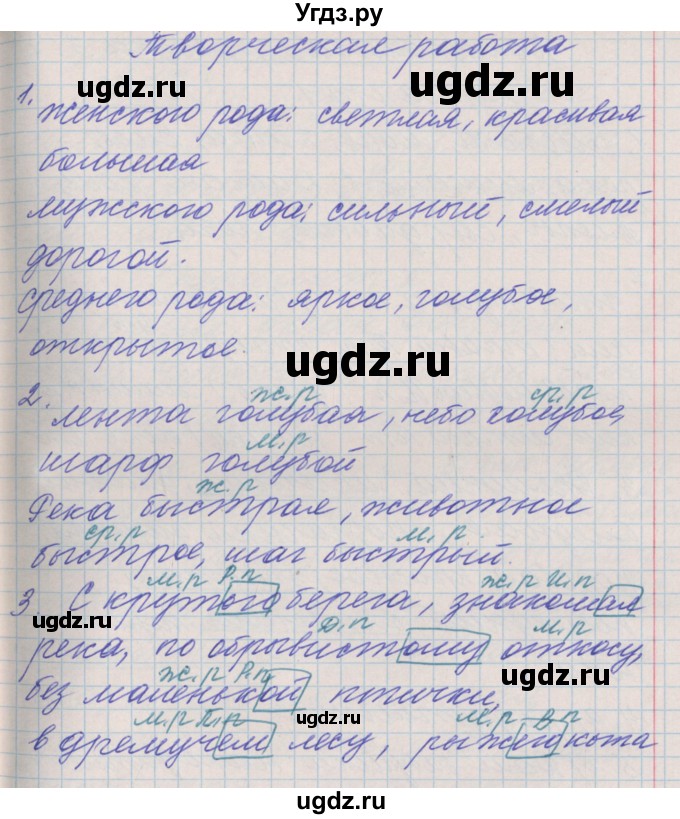 Угдз.ру
Творческая работа
ugdz.ru
ugdz.ru
1.
женского рода: светлая, красивая
большая
мужского рода: сильный, смелый
дорогой.
ugdz.ru
среднего рода: яркое, голубое,
открытое.
ugdz.ru
2. ж.р ср.р
лента голубая, небо голубое,
м.р
шарф голубой
ж.р
Река быстрая, животное
ср.р м.р.
быстрое, шаг быстрый.
м.р Р.п ж.р И.п
3. С крутого берега, знакомая
ugdz.ru
Д.п м.р
река, по обрывистому откосу,
ugdz.ru
ж.р Р.п
без маленькой птички,
м.р П.п м.р В.п
в дремучем лесу, рыжего кота
ugdz.ru
ugdz.ru
ugdz.ru